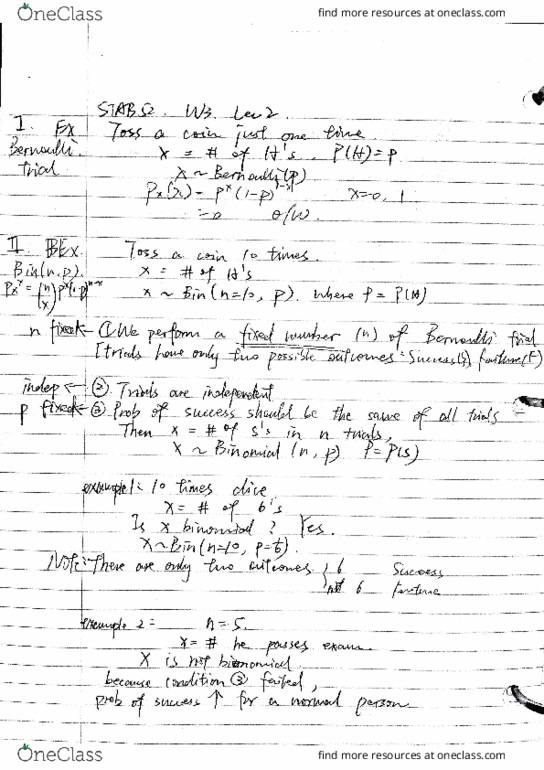 OneClass
find more resources at oneclass.com
STAB52. W3. Lec 2.
I. Ex Toss a coin just one time
Bernoulli trial
X = # of H's. P(H) = p
X ~ Bernoulli (p)
Px(x) = p^x (1-p)^1-x x=0, 1
= 0 o/w.
II. Ex. Toss a coin 10 times.
Bin(n.p). X = # of H's
X ~ Bin(n=10, p). where p = P(H)
n fixed ← ① We perform a fixed number (n) of Bernoulli trial
[trials have only two possible outcomes = Success(S) failure(F)
indep ← ② Trials are independent
p fixed ← ③ Prob of success should be the same of all trials
Then X = # of S's in n trials,
X ~ Binomial (n, p) P = P(S)
example1: 10 times dice
X = # of 6's
Is X binomial? Yes.
X~Bin(n=10, p=1/6).
Note: There are only two outcomes { 6 Success
not 6 Failure
Example 2: n = 5
X = # he passes exam
X is not binomial
because condition ③ failed,
prob of success ↑ for a normal person
OneClass
find more resources at oneclass.com